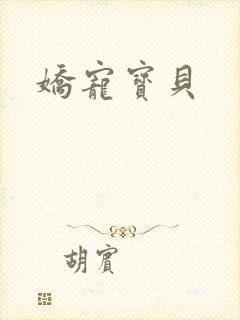 嬌寵寶貝
胡賓